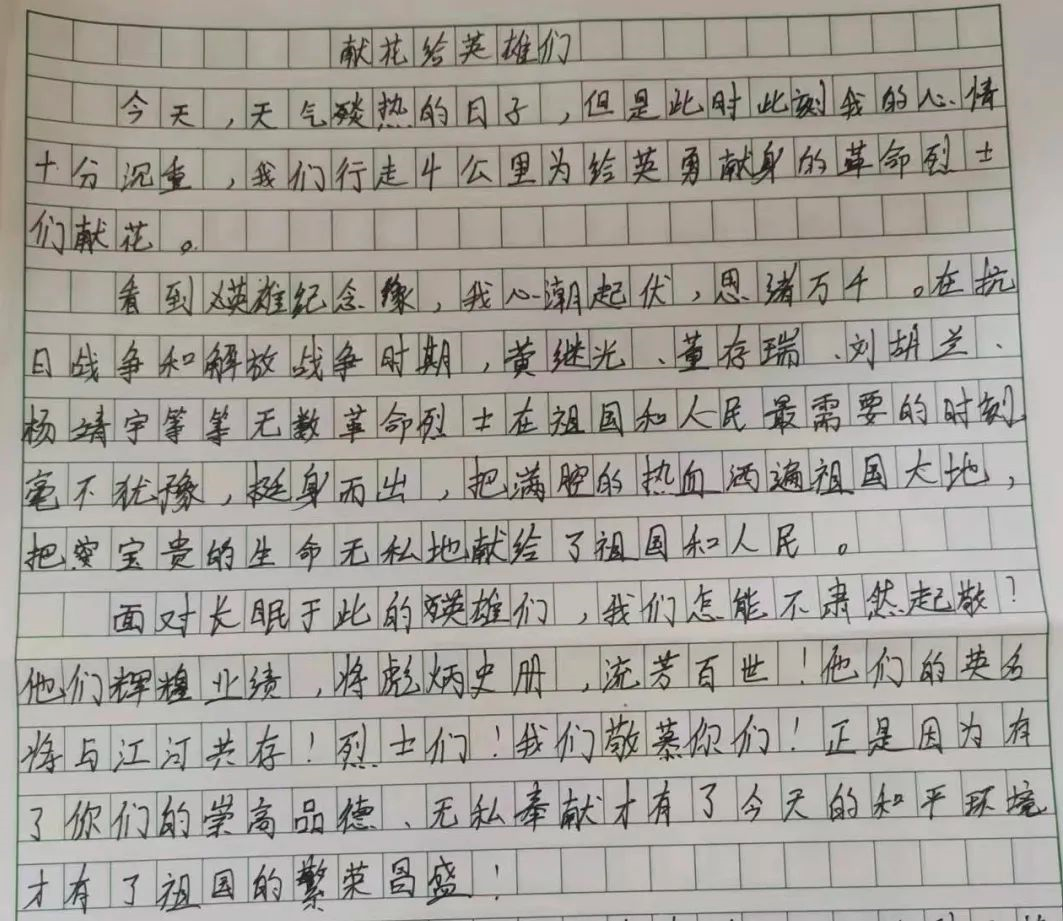 献花给英雄们
今天，天气炎热的日子，但是此时此刻我的心情
十分沉重，我们行走4公里为给英勇献身的革命烈士
们献花。
看到英雄纪念像，我心潮起伏，思绪万千。在抗
日战争和解放战争时期，黄继光、董存瑞、刘胡兰、
杨靖宇等等无数革命烈士在祖国和人民最需要的时刻
毫不犹豫，挺身而出，把满腔的热血洒遍祖国大地，
把宝贵的生命无私地献给了祖国和人民。
面对长眠于此的英雄们，我们怎能不肃然起敬？
他们辉煌业绩，将彪炳史册，流芳百世！他们的英名
将与江河共存！烈士们！我们敬慕你们！正是因为有
了你们的崇高品德、无私奉献才有了今天的和平环境
才有了祖国的繁荣昌盛！